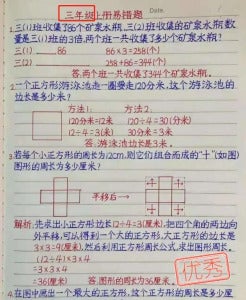 三年级上册易错题 Date.
1.三(1)班收集了86个矿泉水瓶,三(2)班收集的矿泉水瓶数
量是三(1)班的3倍,两个班一共收集了多少个矿泉水瓶?
三(1) 86 86×3=258(个)
三(2) 258+86=344(个)
答:两个班一共收集了344个矿泉水瓶.
2.一个正方形游泳池走一圈要走120分米,这个游泳池的
边长是多少米?
方法1: 方法2:
120分米=12米 120÷4=30(分米)
12÷4=3(米) 30分米=3米
答:游泳池边长3米.
3.若每个小正方形的周长为12cm,则它们组合而成的"十"(如图)
图形的周长为多少厘米?
平移后→
解析:先求出小正方形边长12÷4=3(厘米),把四个角的两边向
外平移,可以得到一个大的正方形,大正方形的边长是
3×3=9(厘米),然后利用正方形周长公式,求出图形周长.
(12÷4)×3×4
=3×3×4
=36(厘米) 答:图形的周长为36厘米.
优秀
4.在图中画出一个最大的正方形,这个正方形的周长是多少厘